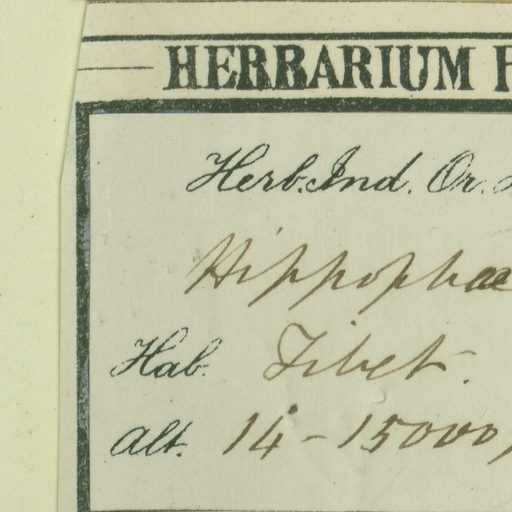 HERBARIUM
Herb. Ind. Or.
Hippophae
Hab. Tibet.
Alt. 14-15000,